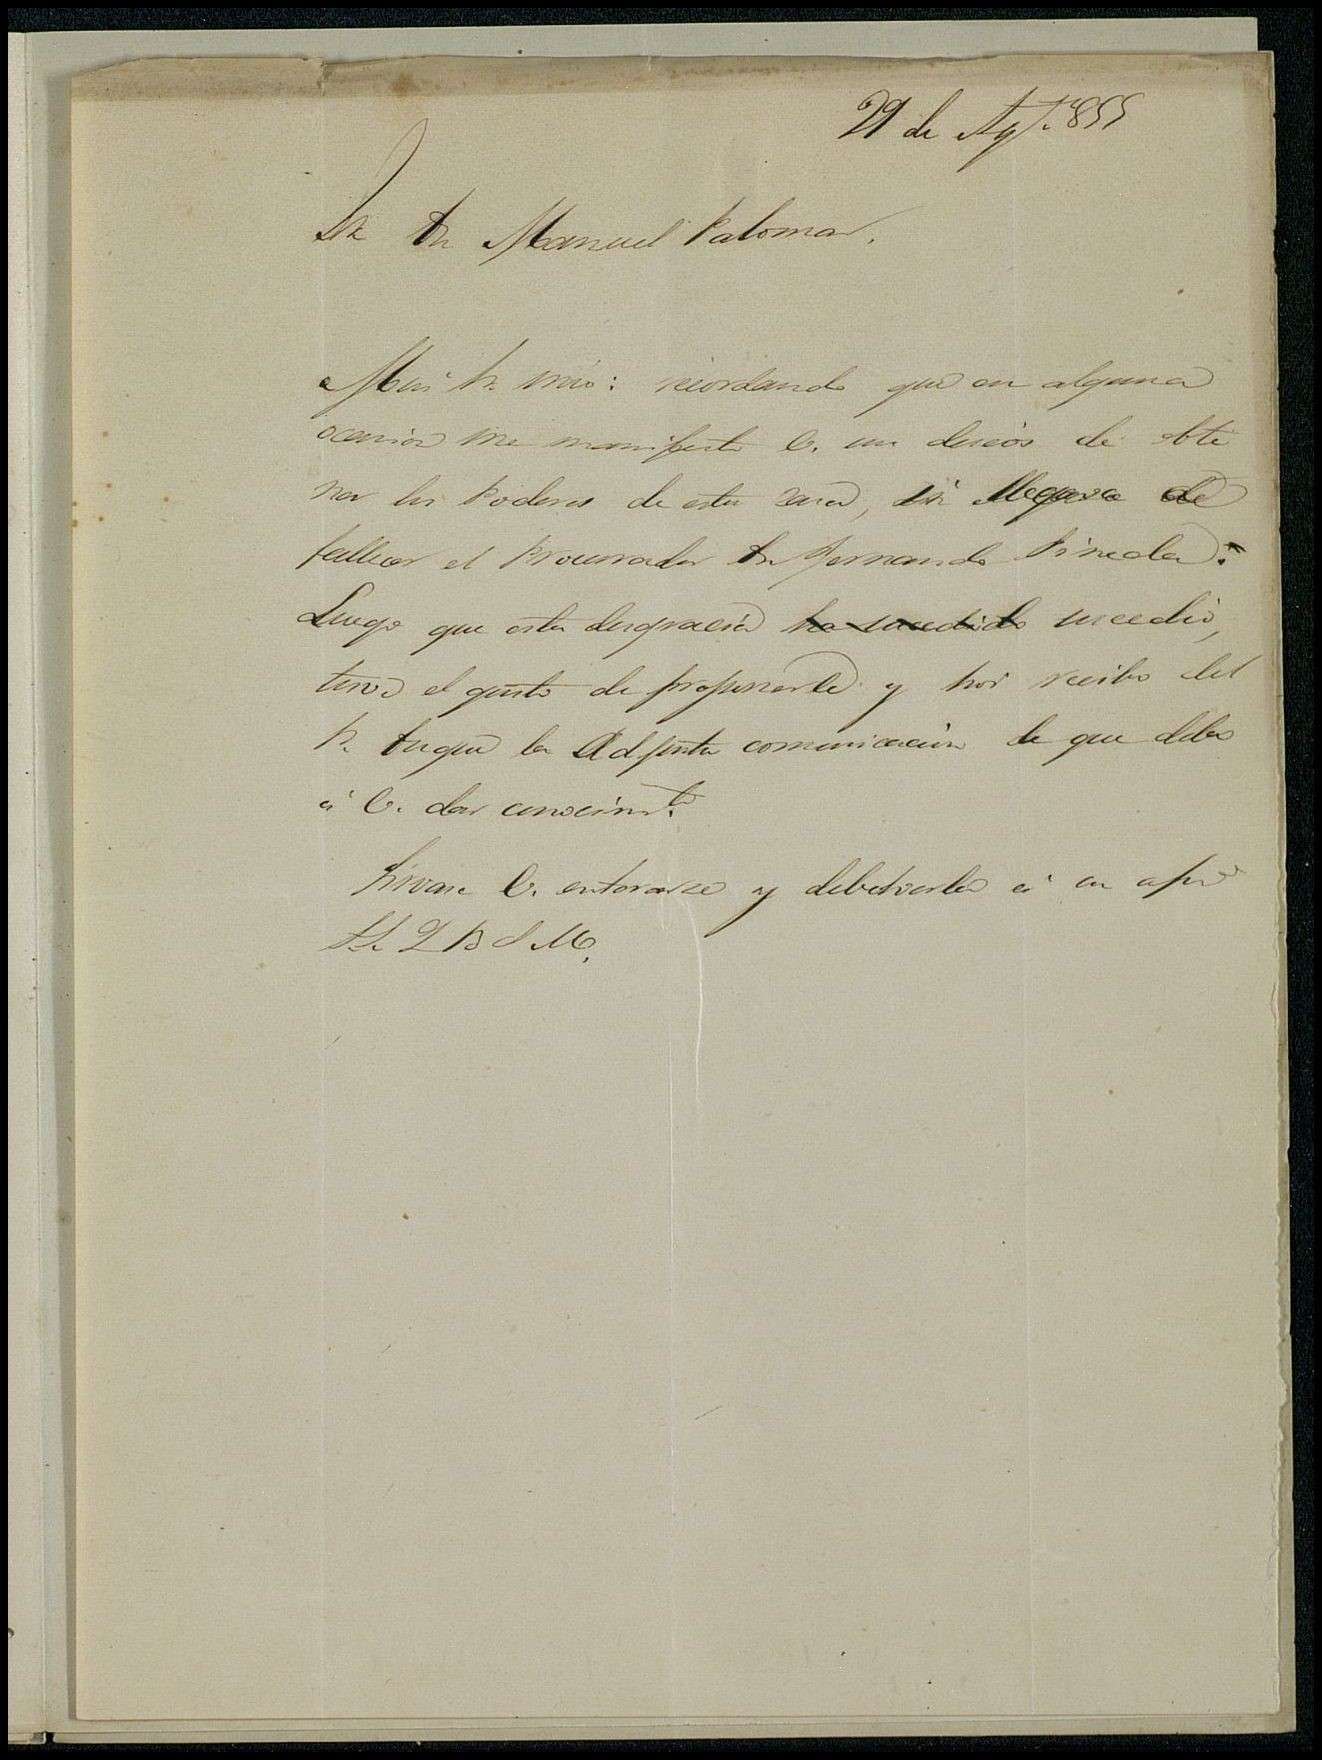 29 de Agto 855
Sr Dn Manuel Palomar.
Mui Sr mio: recordando que en alguna
ocasion me manifesto V. sus deseos de obte
ner los Poderes de esta casa, si llegara a
fallecer el Procurador Dn Fernando Pineda:
Luego que esta desgracia ha sucedido sucedió,
tuve el gusto de proponerle y hoi recibo del
Sr Duque la adjunta comunicacion de que debo
á V. dar conocimto.
Sirvase V. enterarse y debolverla á su afmo
S.S. Q B S M.